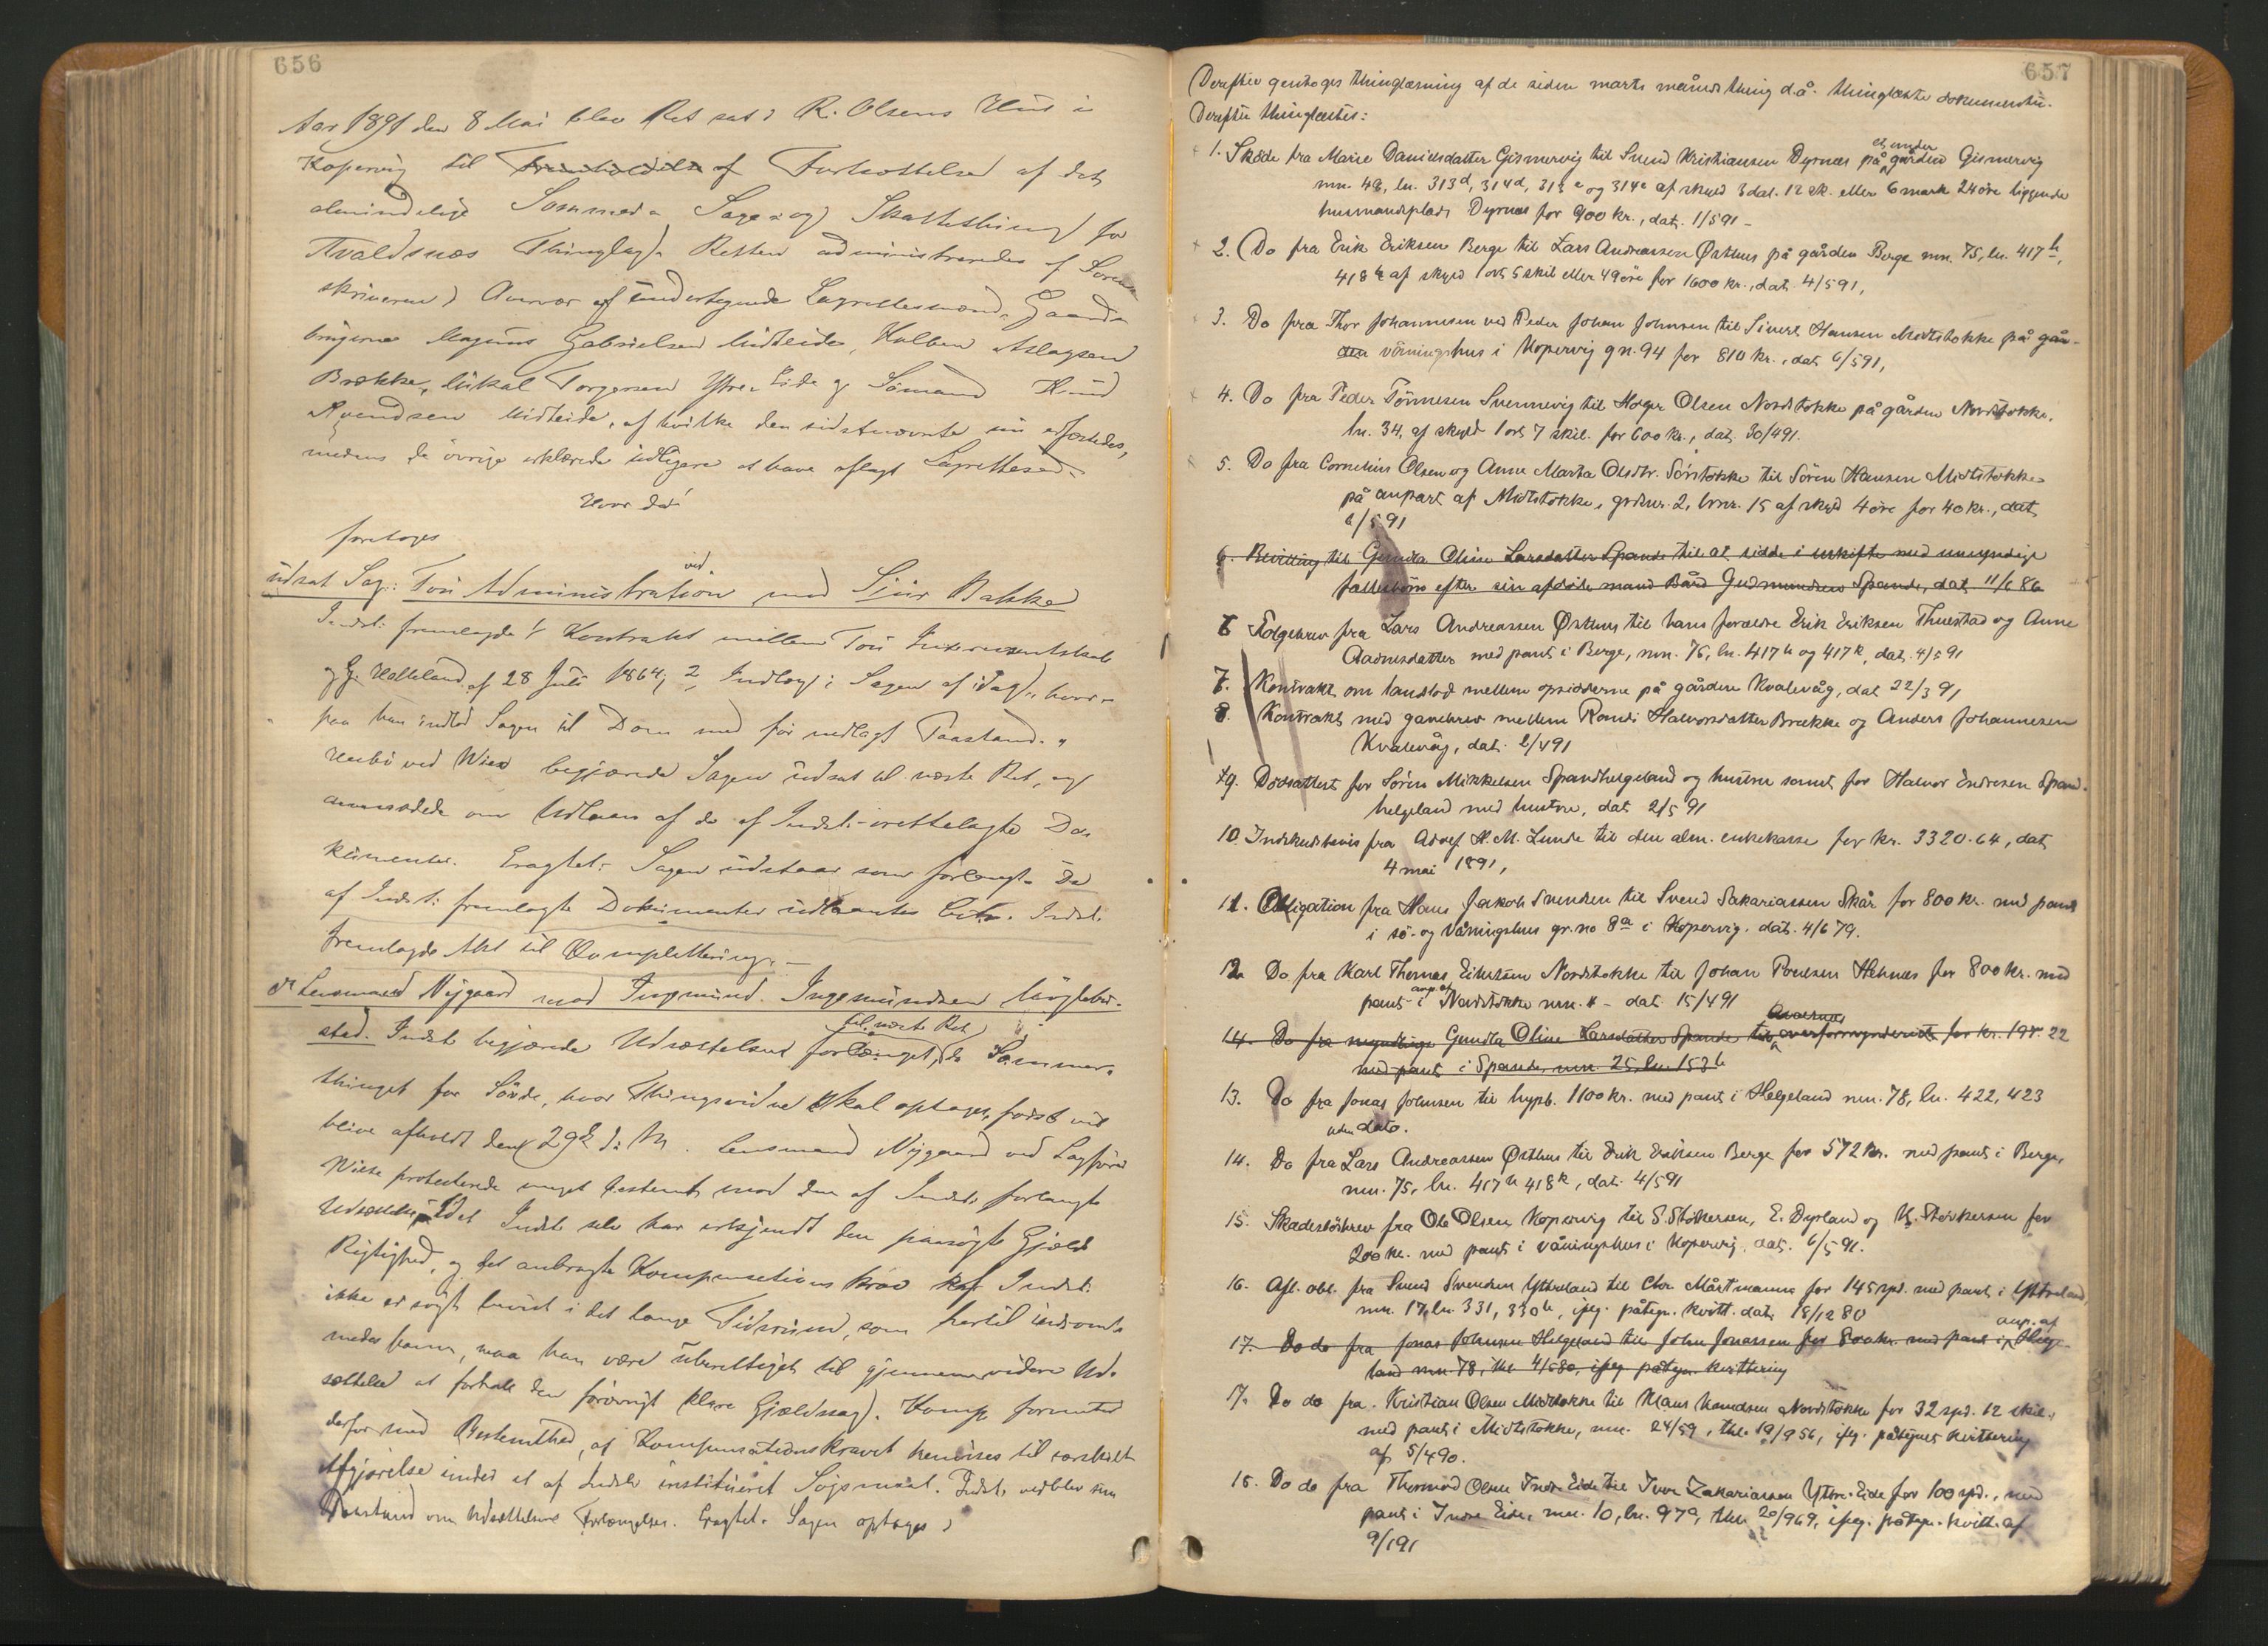 656
Aar 1891 den 8 Mai blev Ret sat i R. Olsens Hus i
Kopervig til Fremholdelse af Fortsættelsen af det
almindelige Sommer- Sage- og Skattething for
Avaldsnæs Thinglag. Retten administreredes af Soren-
skriveren i Overvær af undertegnede Lagrettesmænd, Gaard-
brugerne Magnus Gabrielsen Midteide, Kolben Aslagsen
Brække, Mikal Torgersen Ytre-Eide og Sömand Knud
Svendsen Midteide, af hvilke den sidstnævnte nu edfæstedes,
medens de övrige erklærede tidligere at have aflagt Lagrettesed.
Hvor da!
foretoges
udsat Sag: Tou Administration ved
mod Siur Bakke
Indst. fremlagde 1, Kontrakt mellem Tou Interessentskab
og G. Helleland af 28 Juli 1864; 2, Indlæg i Sagen af i Dag, hvor-
paa han indlod Sagen til Dom med før nedlagt Paastand.
ved Wiese begjærede Sagen udsat til næste Ret, og
anmodede om Udlaan af de af Indst. irettelagte Do-
kumenter. Eragtet: Sagen udstaar som forlangt. De
af Indst. fremlagte Dokumenter udlaantes Citr. Indst.
fremlagde Akt til Complettering.
Lensmand Nygaard mod Ingmund Ingemundsen
sted. Indst. begjærede Udsættelsen forlænget til næste Ret, da Sommer-
thinget for , hvor Thingsvidne skal optages, først vil
blive afholdt den 29de d. M. Lensmand Nygaard ved Sagfører
Wiese protesterede meget bestemt mod den af Indst. forlangte
Udsættelse, idet Indst. selv har erkjendt den paasögte Gjælds
Rigtighed, og det anbragte Kompensationskrav af Indst.
ikke er sögt bevist i det lange Tidsrum, som hertil er
ham, maa han være uberettiget til gjennem videre Ud-
sættelse at forhale den forövrigt klare Gjældssag. Komp. formente
derfor med Bestemthed, at Kompensationskravet henvises til særskilt
Afgjörelse under et af Indst. institueret Sögsmaal. Indst. vedblev sin
Paastand om Udsættelsens Forlængelse. Eragtet: Sagen optages
657
Derefter gentoges thinglæsning af de siden marts måneds thing d.å. thinglæste dokumenter.
Derefter thinglæstes:
1. Sköde fra Marie Danielsdatter Gismervig til Svend Kristiansen Dyrnes på et under gården Gismervig
mn. 48, ln. 313d, 314d, 313e og 314e af skyld 3 dal. 12 sk. eller 6 mark 24 öre liggende
husmandsplads Dyrnes for 900 kr., dat. 1/5 91 -
2. Do fra Erik Eriksen Berge til Lars Andreassen Østhus på gården Berge mn. 75, ln. 417h,
418k af skyld 1 ort 5 skil eller 49 öre for 1600 kr., dat. 4/5 91,
3. Do fra Thor Johannesen ved Peder Johan Johnsen til Sivert Hansen Midtstokke på går-
den våningshus i Kopervig gn. 94 for 810 kr., dat. 6/5 91,
4. Do fra Peder Tönnesen Svennevig til Holger Olsen Nordstokke på gården Nordstokke,
ln. 34, af skyld 1 ort 7 skil. for 600 kr., dat. 30/4 91.
5. Do fra Cornelius Olsen og Anne Marta Olsdtr. Sörstokke til Sören Hansen Midtstokke
på anpart af Midtstokke, grdnr. 2, brnr. 15 af skyld 4 öre for 40 kr., dat.
6/5 91
6. Bevilling til Gundla Oline Larsdatter Spande til at sidde i uskifte med umyndige
fællesbörn efter sin afdöde mand Bård Gudmundsen Spande, dat. 11/6 86
6 Fölgebrev fra Lars Andreassen Østhus til hans forældre Erik Eriksen Thuestad og Anne
Aadnesdatter med pant i Berge, mn. 75, ln. 417h og 417k, dat. 4/5 91
7. Kontrakt om landslod mellem opsidderne på gården Kvalevåg, dat 22/3 91
8. Kontrakt med gavebrev mellem Randi Halvorsdatter Brække og Anders Johannesen
Kvalevåg, dat. 2/4 91
9. Dödsattest for Sören Mikkelsen Spandhelgeland og hustru samt for Halvor Endresen Spand-
helgeland med hustru, dat. 2/5 91
10. Indskudsbevis fra Adolf H. M. Lunde til den alm. enkekasse for kr. 3320.64, dat.
4 mai 1891,
11. Obligation fra Hans Jakob Svendsen til Svend Sakariassen Skår for 800 kr. med pant
i sö- og Våningshus gr. no 8a i Kopervig. dat. 4/6 79.
12 Do fra Karl Thomas Eilertsen Nordstokke til Johan Poulsen Helnæs for 800 kr. med
pant i anp. af Nordstokke mn. 11 - dat. 15/4 91
14. Do fra myndlinge Gundla Oline Larsdatter Spande til Avaldsnes overformynderi for kr. 198.22
med pant i Spande, mn. 25, ln. 153b
13. Do fra Jonas Johnsen til hypb. 1100 kr. med pant i Helgeland mn. 78, ln. 422, 423
uden dato.
14. Do fra Lars Andreassen Østhus til Erik Eriksen Berge for 572 kr. med pant i Berge,
mn. 75, ln. 417h 418k, dat. 4/5 91
15. Skadeslösbrev fra Ole Olsen Kopervig til S. Störkersen, E. Dyrland og K. Störkersen for
200 kr. med pant i våningshus i Kopervig, dat. 6/5 91.
16. Afl. obl. fra Svend Svendsen Ytreland til Chr. Mårtmanns for 145 spd. med pant i Ytreland
mn. 17, ln. 331, 330b, ifg. påtegn. kvitt. dat. 18/12 80
17. Do do fra Jonas Johnsen Helgeland til John Jonassen for 800 kr. med pant i anp. af Helge-
land mn. 78, thl 4/5 80, ifølg påtegn. kvittering
17. Do do fra Kristian Olsen Midtstokke til Klaus Knudsen Nordstokke for 32 spd. 12 skil.,
med pant i Midtstokke, mn. 24/59, thl. 19/9 56, ifg. påtegnet kvittering
af 5/4 90.
18. Do do fra Thormod Olsen Indre Eide til Iver Zakariassen Ytre-Eide for 100 spd., med
pant i Indre Eide, mn. 10, ln. 97a, thl. 20/9 69, ifølg. påtegn. kvitt. af
9/1 91